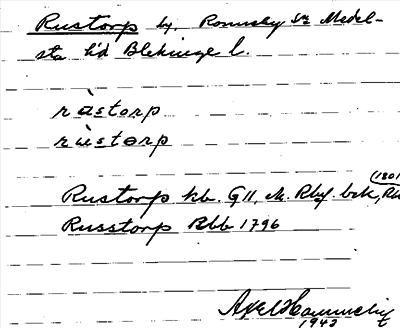 Rustorp by, Ronneby sn Medel-
sta hd Blekinge l.
ràstorp
rùstorp
(1801
Rustorp kb. G11, M. Rbg. bok, Rbb
Russtorp Rbb 1796
Axel Hammelin
1942